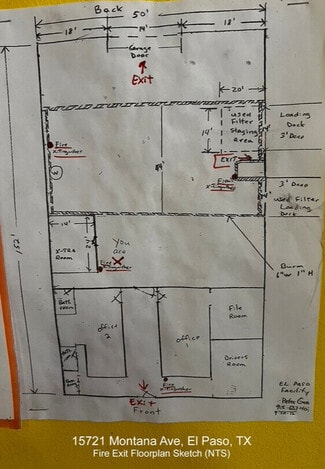 Back
50'
18'
14'
18'
Garage
Door
Exit
20'
Used
Filter
Staging
area
14'
Loading
Dock
3' Deep
EXIT
Fire
W
Fire
3' Deep
Used Filter
Loading
Dock
152'
14'
24'
X-TRA
Room
You
are
X
Fire
Berm
6"W 1" H
Bath
room
office
2
office
1
File
Room
Drivers
Room
Fire
Exit
Front
EL PASO
Facility
15721 Montana Ave, El Paso, TX
Fire Exit Floorplan Sketch (NTS)